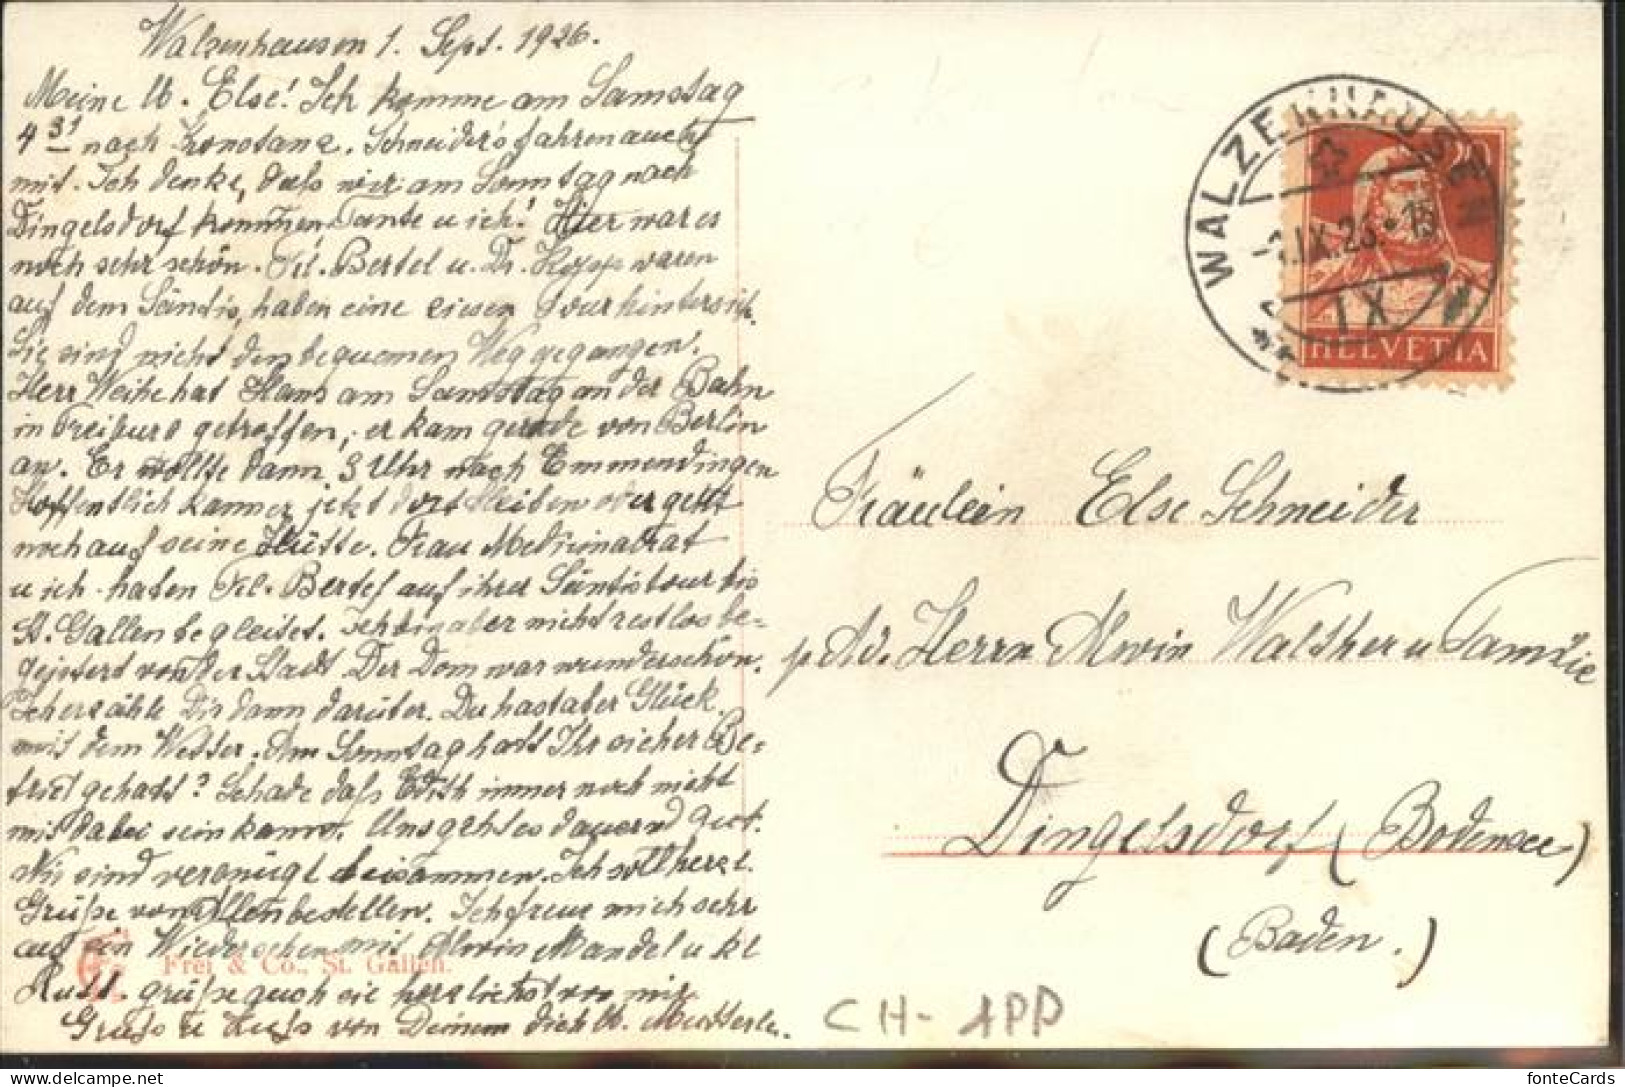 Walzenhausen 1. Sept. 1926.
Meine lb. Else! Ich komme am Samstag
4 31 nach Konstanz. Schneider's fahren auch
mit. Ich denke, dass wir am Sonntag nach
Dingelsdorf kommen Tante u ich! Hier war es
noch sehr schön. Frl. Bertel u. Dr. Hopp waren
auf dem Säntis, haben eine riesen Tour hinter sich.
Sie sind nicht den bequemen Weg gegangen.
Herr Weihe hat Hans am Samstag an der Bahn
in Freiburg getroffen, er kam gerade von Berlin
an. Er wollte dann 3 Uhr nach Emmendingen
Hoffentlich kann er jetzt dort bleiben oder geht
noch auf seine Hütte. Frau Medizinalrat
u ich haben Frl. Bertel auf ihrer Säntistour bis
St. Gallen begleitet. Ich bin aber nicht restlos be=
geistert von der Stadt Der Dom war wunderschön.
Ich erzähle Dir dann darüber. Du hast aber Glück
mit dem Wetter. Am Sonntag hatt Ihr sicher Be=
trieb gehabt? Schade daß Edith immer noch nicht
mit dabei sein kann. Uns geht es dauernd gut.
Wir sind vergnügt beisammen. Ich soll herzl.
Grüße von Allen bestellen. Ich freue mich sehr
auf ein Wiedersehen mit Alwin Mandel u kl
Rudi. grüße auch sie herzlichst von mir
Gruß u Kuß von Deinem dich lb. Mutterle.
Frei & Co., St. Gallen.
WALZENHAUSEN
-1.IX.26.-15
IX
20
HELVETIA
Fräulein Else Schneider
p. Ad. Herrn Alwin Walther u Familie
Dingelsdorf (Bodensee)
(Baden.)
CH-APP
fonteCards